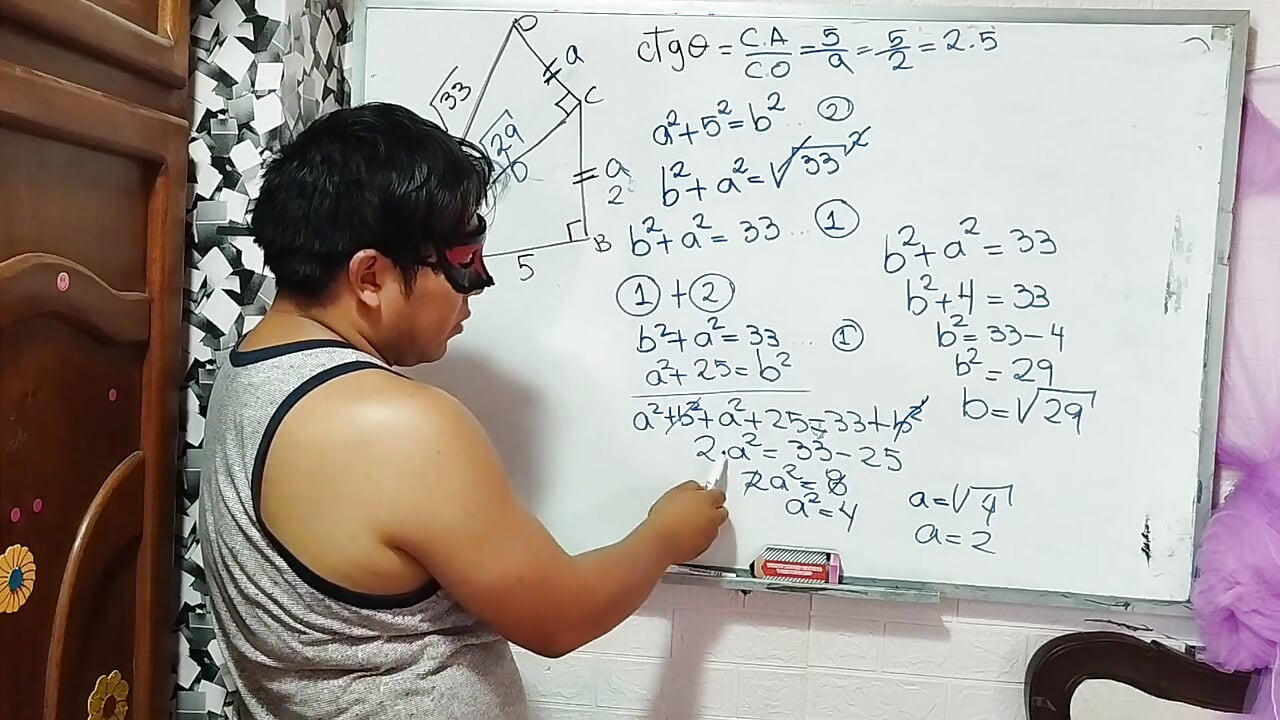 D
a
√33
C
√29
b
a
2
B
5
ctgθ = C.A/C.O = 5/a = 5/2 = 2.5
a² + 5² = b² ... ②
b² + a² = √33²
b² + a² = 33 ... ①
① + ②
b² + a² = 33 ... ①
a² + 25 = b²
a² + b² + a² + 25 = 33 + b²
2·a² = 33 - 25
2a² = 8
a² = 4
a = √4
a = 2
b² + a² = 33
b² + 4 = 33
b² = 33 - 4
b² = 29
b = √29